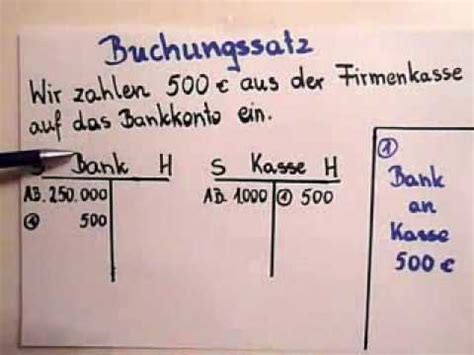 Buchungssatz
Wir zahlen 500 € aus der Firmenkasse
auf das Bankkonto ein.
S Bank H
AB. 250.000
① 500
S Kasse H
AB. 1.000 ① 500
①
Bank
an
Kasse
500 €